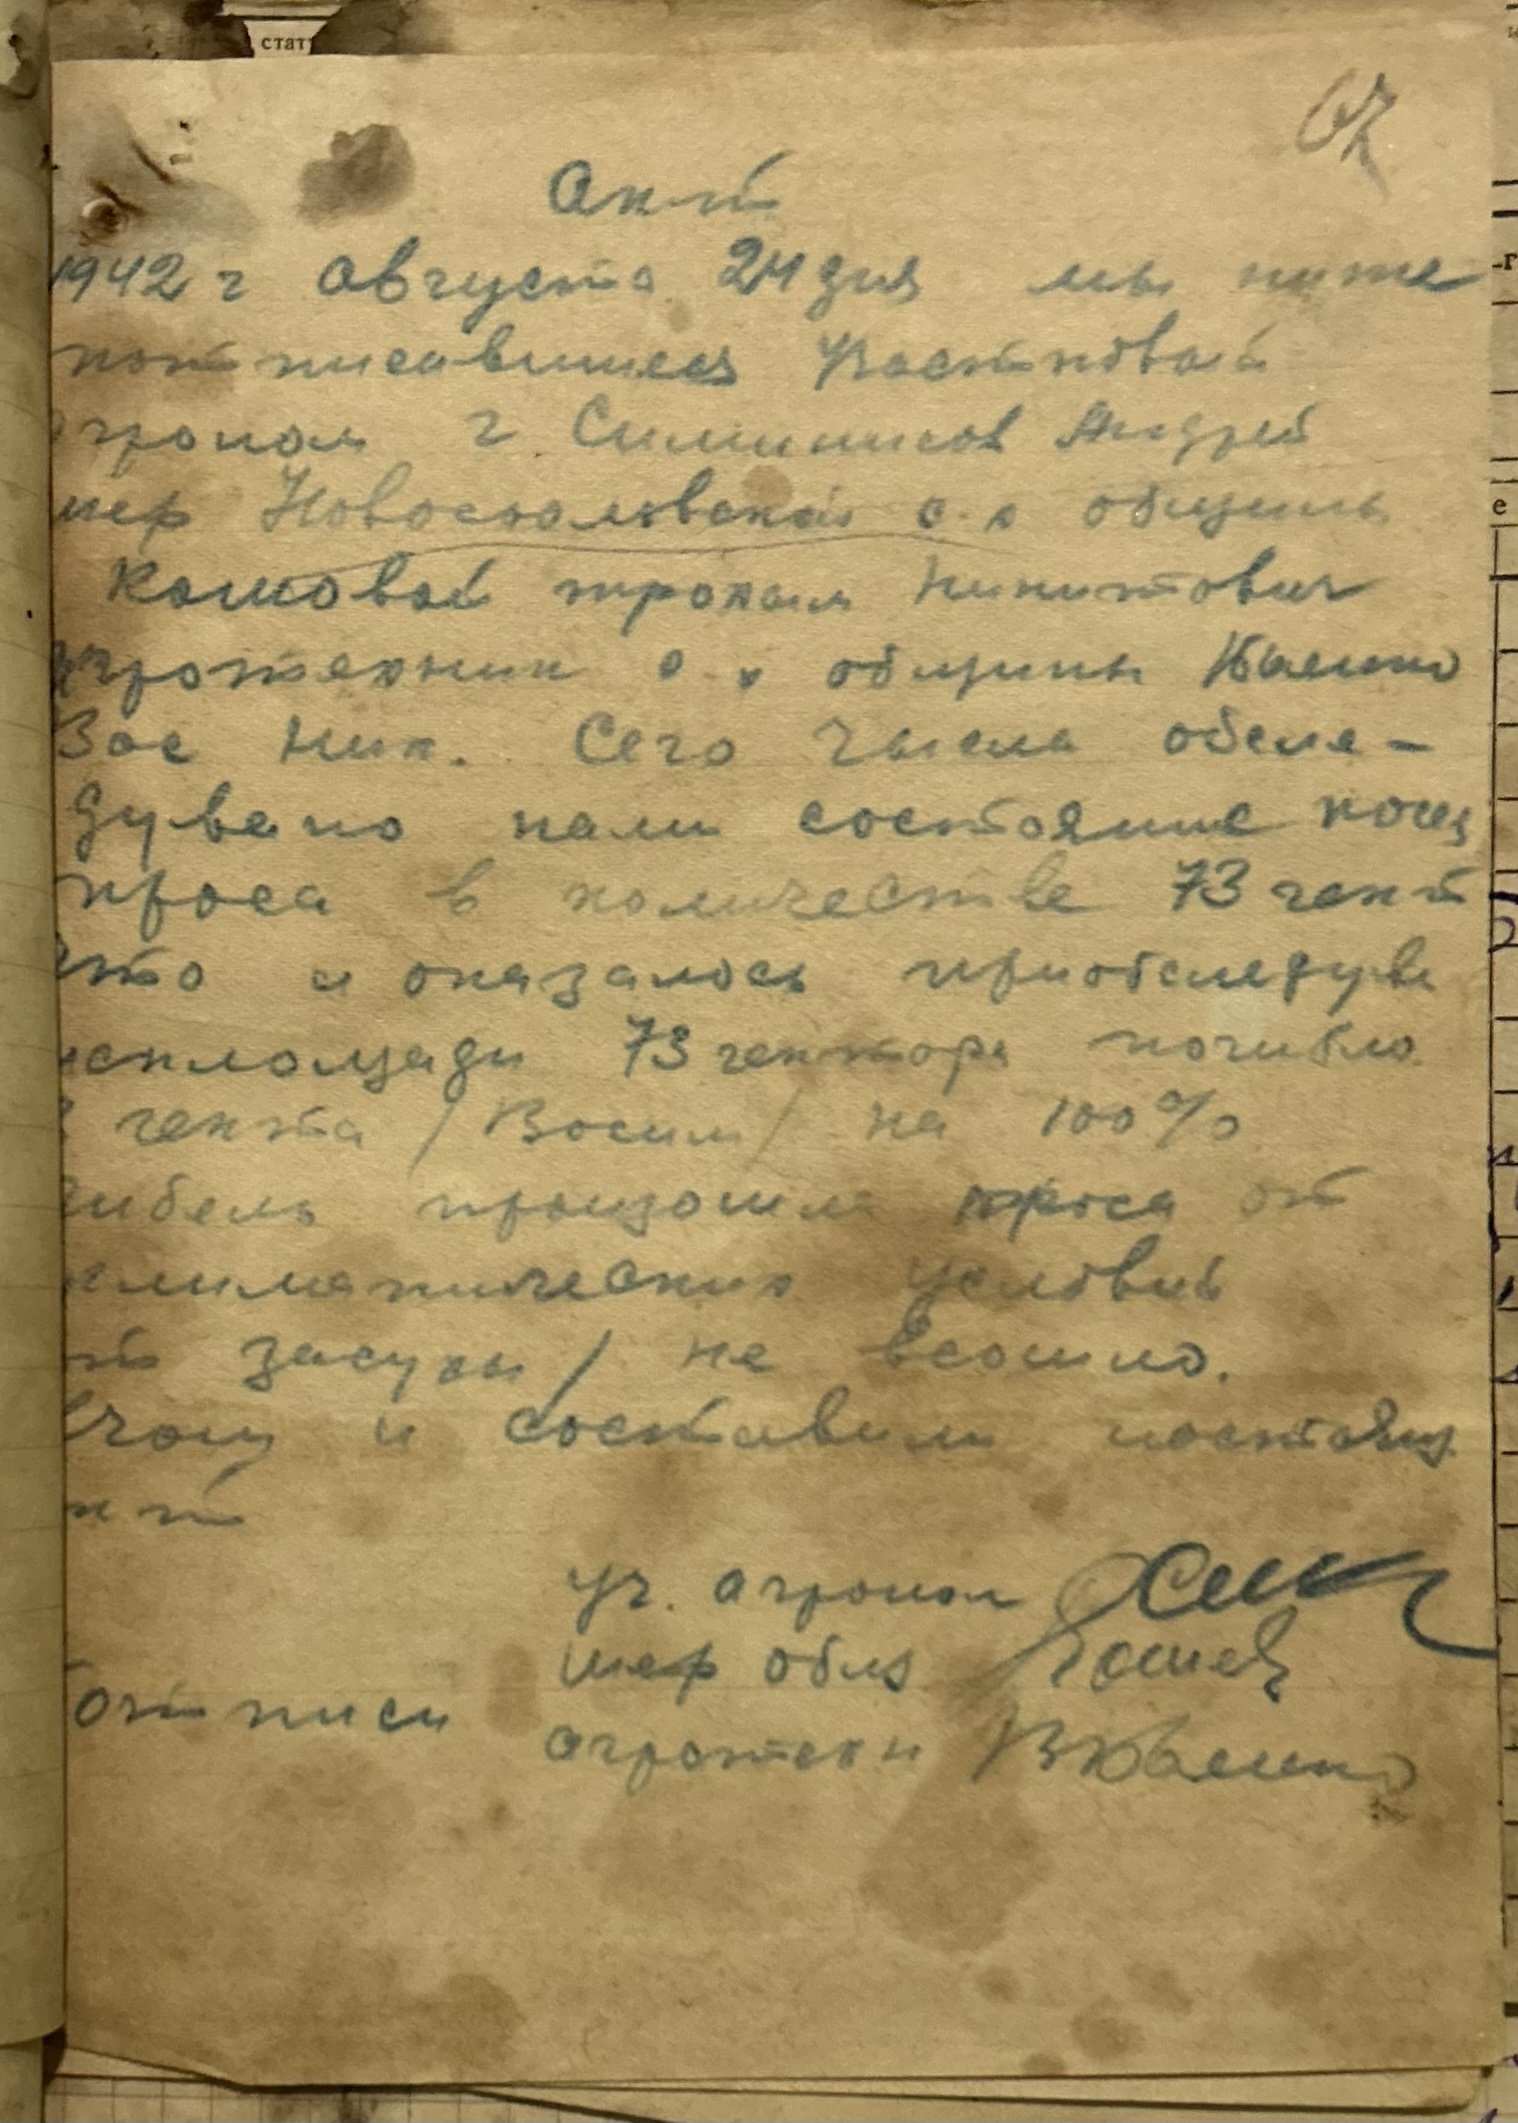 стат
67
Акт
1942 г августа 24 дня мы ниже
потписавшиеся Участковай
агроном г Симиников Андрей
шер Новосоловской с. х общины
Комовой трохаим Никитович
агротехник с х общины
Зос Ник. Сего Числа обсле-
дувано нами состояние посев
проса в количестве 73 гект
что и оказалось приобследува
исплощади 73 гектора погибло
гекта / Восим / на 100%
гибель произошла проса от
климатических условий
от засухи / не всошло.
в чом и составили настоящ
кт
Уч. агроном
Шер общ
отписи
агротехн